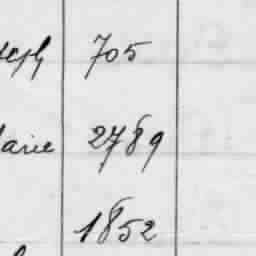 705
arie 2789
1852